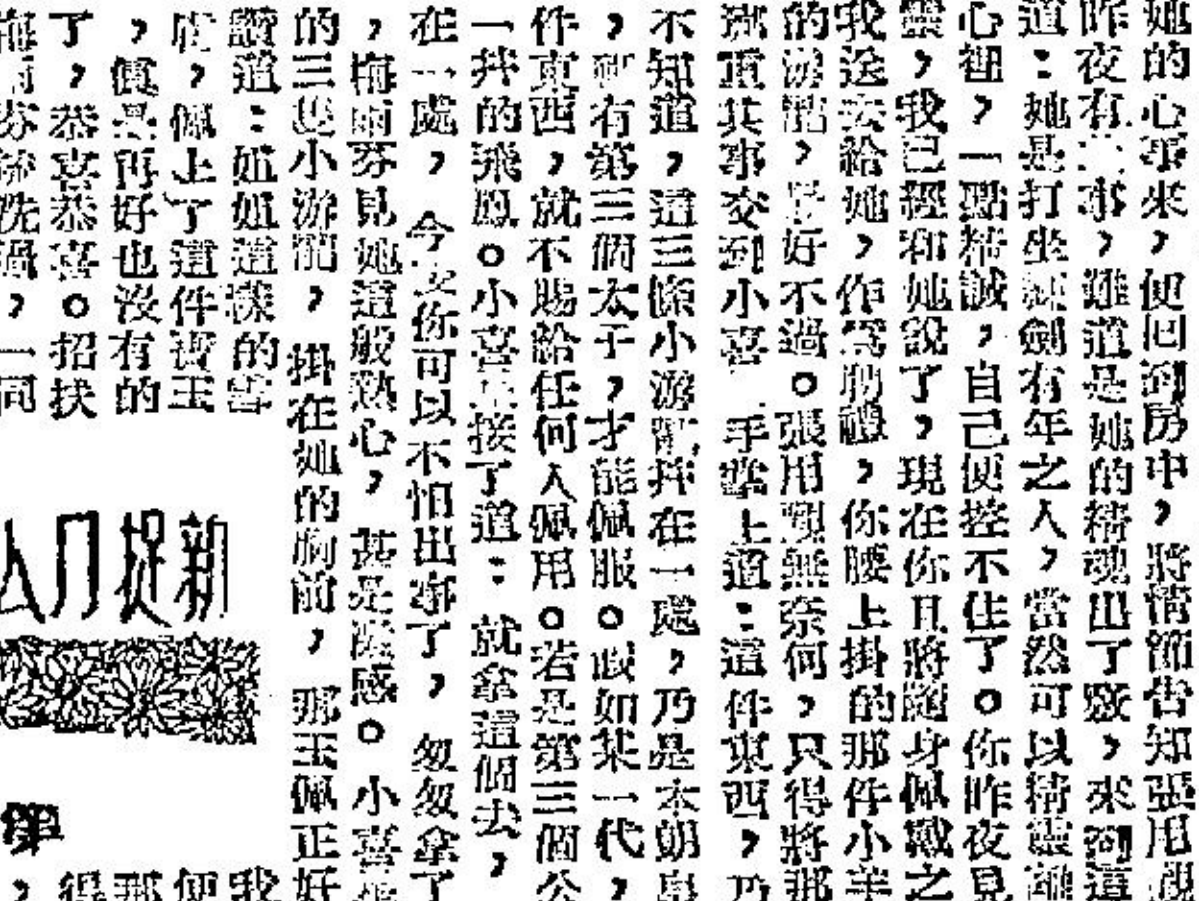 她的心事來，便回到房中，將情節告知張用觀
昨夜有二事，難道是她的精魂出了竅，來到這
道：她是打坐練劍有年之人，當然可以精靈離
心裡，一點精誠，自己便捺不住了。你昨夜見
靈，我已經和她說了，現在你且將隨身佩戴之
我送去給她，作為勝禮，你腰上掛的那件小羊
的游龍，最好不過。張用觀無奈何，只得將那
鄭重其事交到小喜 手掌上道：這件東西，乃
不知道，這三條小游龍拼在一處，乃是本朝皇
，剛有第三個太子，才能佩服。假如某一代，
件東西，就不賜給任何人佩用。若是第三個公
一拼的飛鳳。小喜 接了道：就拿這個去，
在一處，今 你可以不怕出事了，匆匆拿了
，梅雨芬見她這般熱心，甚是 感。小喜是
的三隻小游龍，掛在她的胸前，那玉佩正好
讚道：姐姐這樣的
，佩上了這件寶玉
，真是再好也沒有的
了，恭喜恭喜。招扶
梅雨芬 洗過，一同
新捉刀人
第
我
便
那
得
，